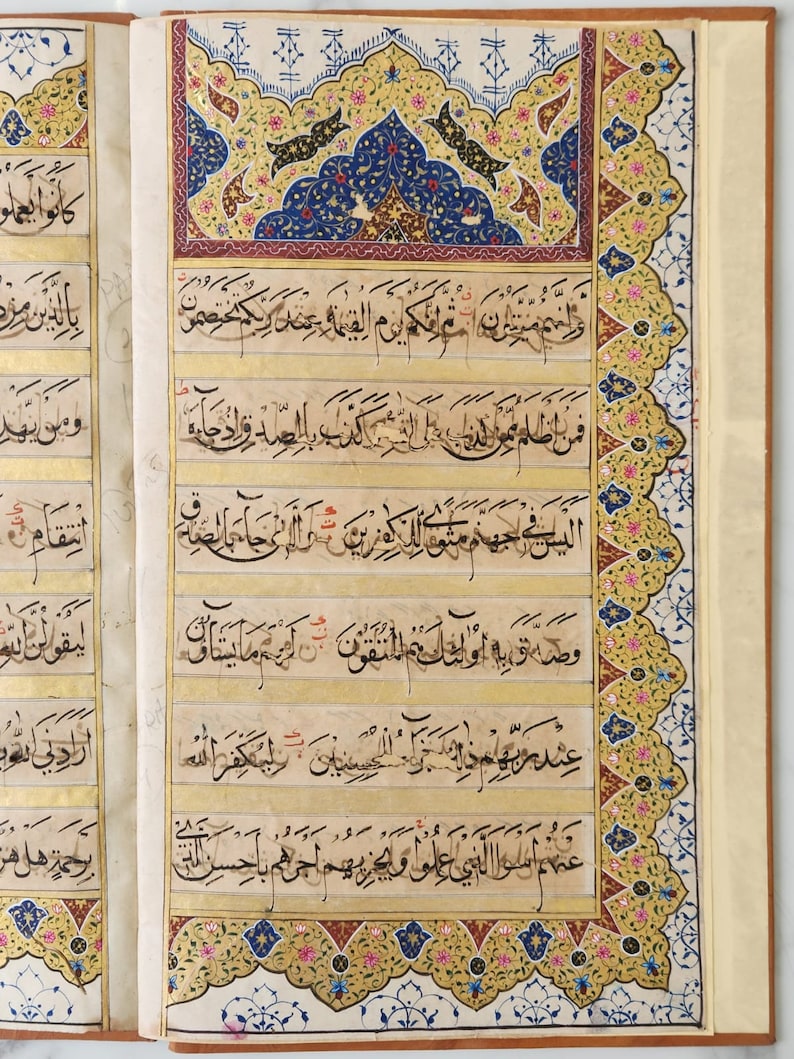 وَاِنَّهُمْ مَيِّتُونَ ثُمَّ اِنَّكُمْ يَوْمَ الْقِيٰمَةِ عِنْدَ رَبِّكُمْ تَخْتَصِمُونَ
فَمَنْ اَظْلَمُ مِمَّنْ كَذَبَ عَلَى اللّٰهِ وَكَذَّبَ بِالصِّدْقِ اِذْ جَآءَهُ
اَلَيْسَ فِي جَهَنَّمَ مَثْوًى لِلْكٰفِرِينَ وَالَّذِي جَآءَ بِالصِّدْقِ
وَصَدَّقَ بِهِ اُولٰئِكَ هُمُ الْمُتَّقُونَ لَهُمْ مَا يَشَآؤُنَ
عِنْدَ رَبِّهِمْ ذٰلِكَ جَزَآءُ الْمُحْسِنِينَ لِيُكَفِّرَ اللّٰهُ
عَنْهُمْ اَسْوَاَ الَّذِي عَمِلُوا وَيَجْزِيَهُمْ اَجْرَهُمْ بِاَحْسَنِ الَّذِي
كَانُوا
بِالَّذِينَ مِنْ
وَمَنْ يَهْدِ
انْتِقَامٍ
لَيَقُولُنَّ اللّٰهُ
اَرَادَنِيَ اللّٰهُ
بِرَحْمَةٍ هَلْ هُنَّ